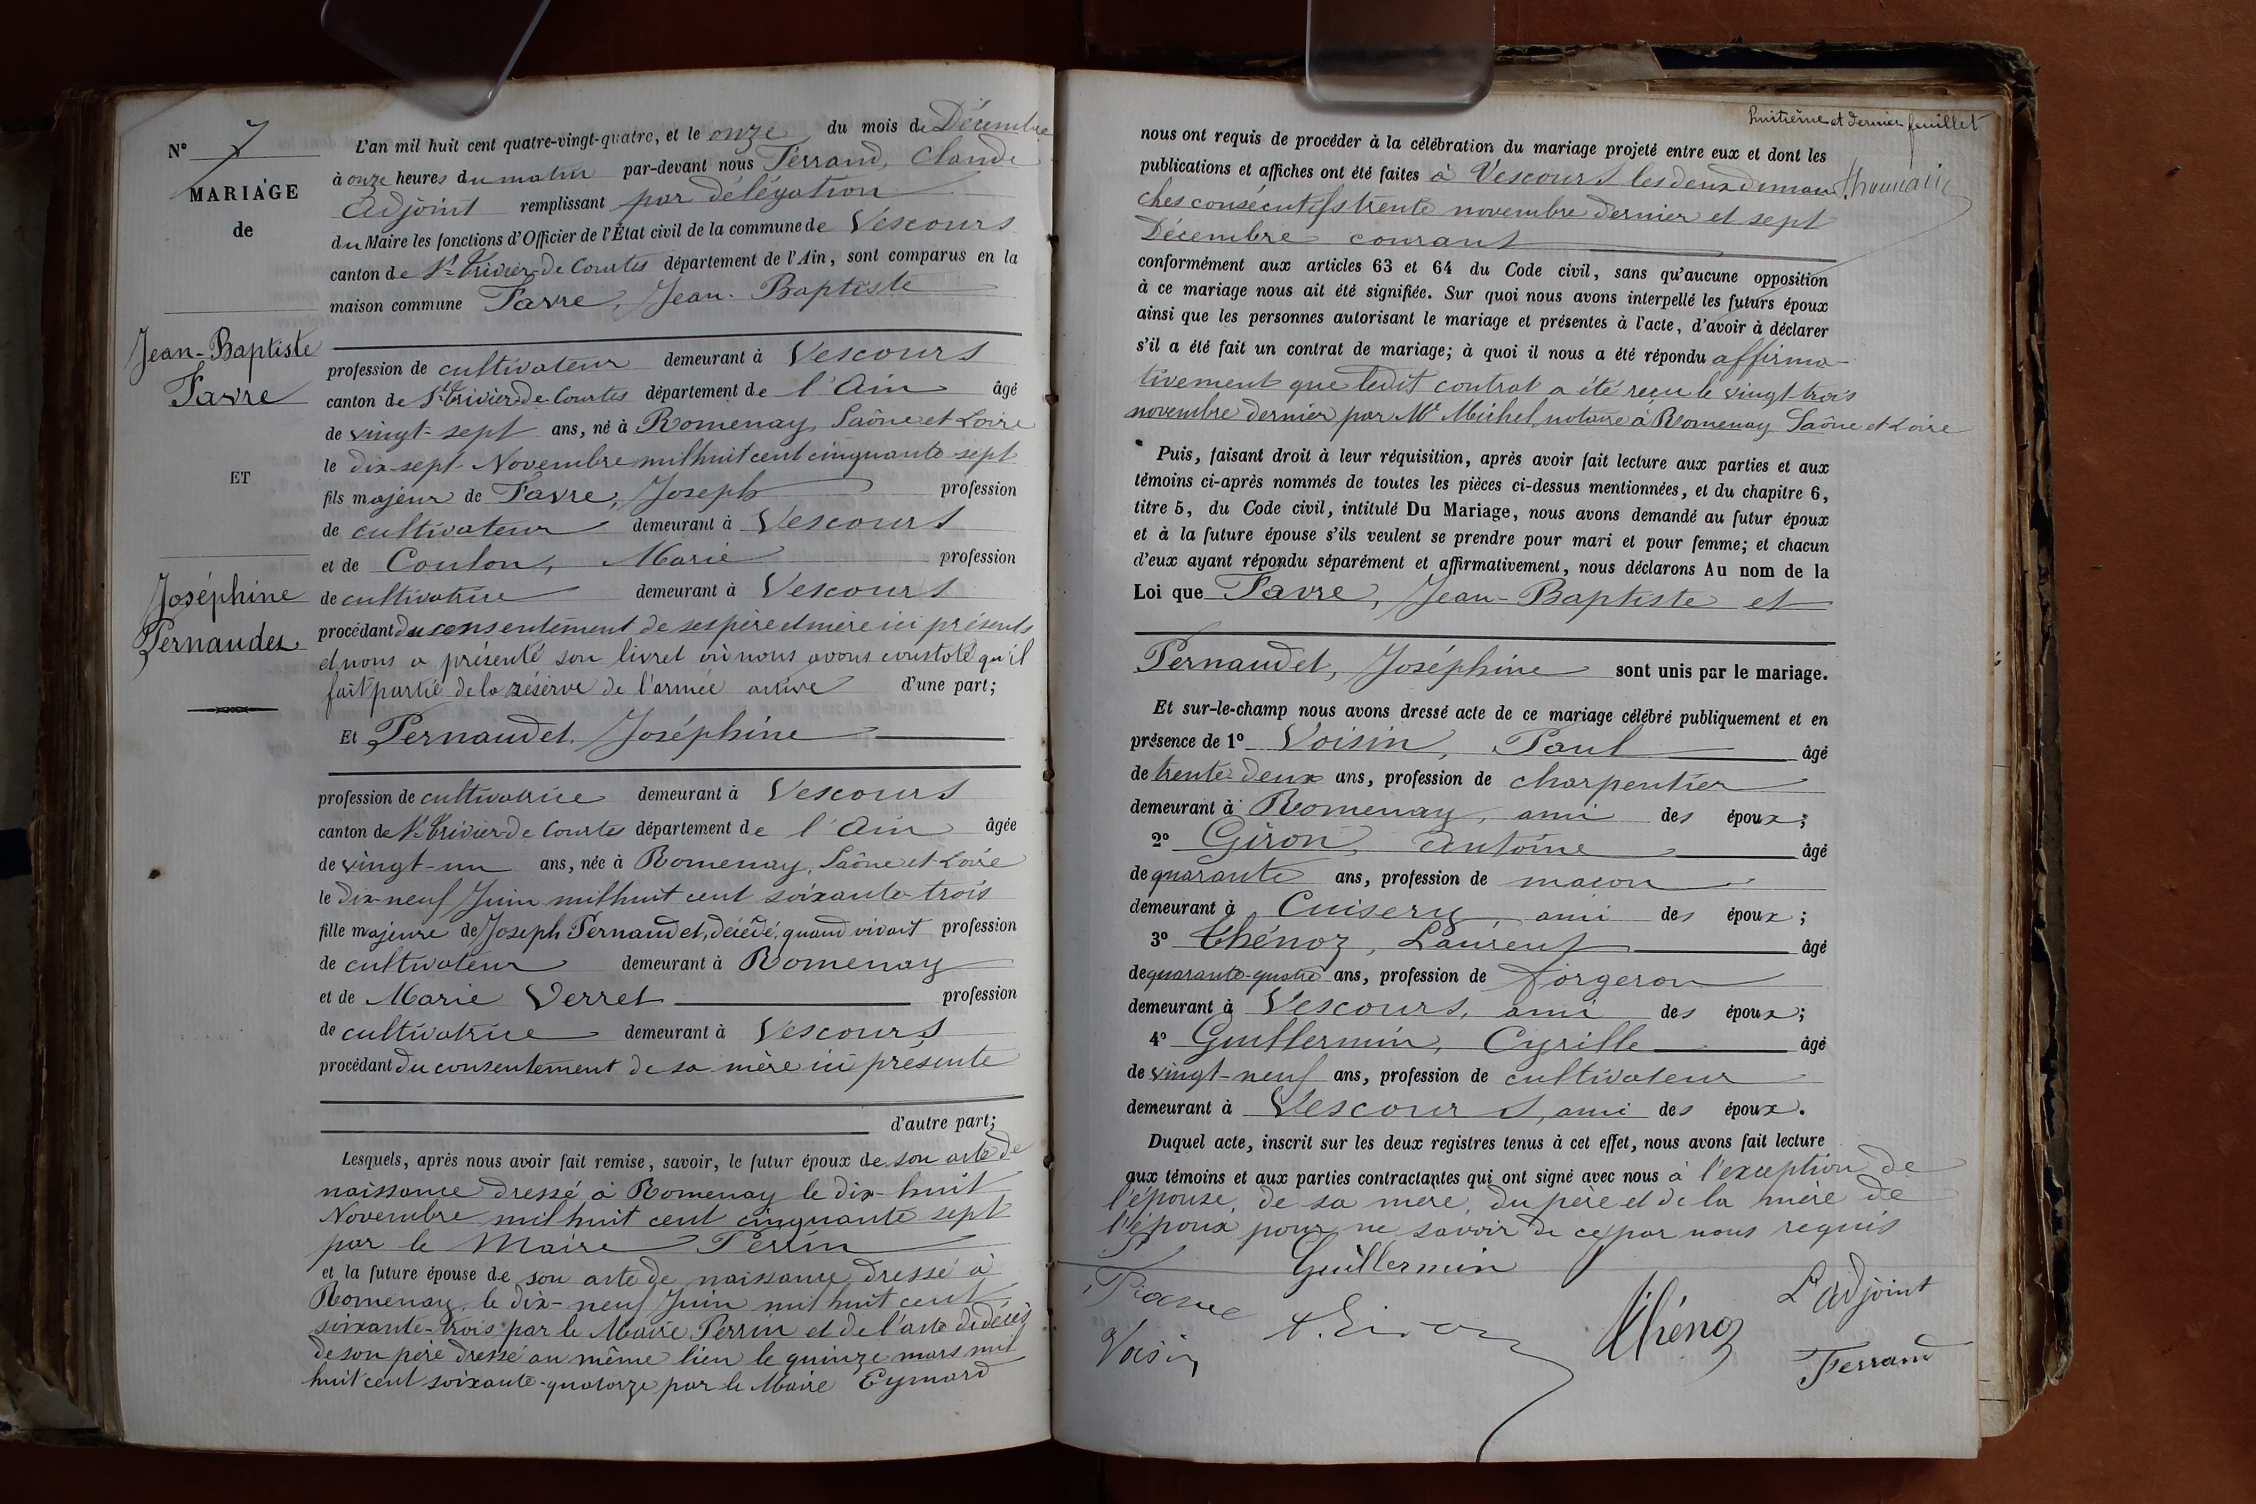 N° 7
MARIAGE
de
Jean-Baptiste
Favre
ET
Joséphine
Pernaudet
L'an mil huit cent quatre-vingt-quatre, et le onze du mois de Décembre
à onze heures du matin par-devant nous Ferrand, Claude
Adjoint remplissant par délégation
du Maire les fonctions d'Officier de l'État civil de la commune de Vescours
canton de St Trivier de Courtes département de l'Ain, sont comparus en la
maison commune Favre, Jean-Baptiste
profession de cultivateur demeurant à Vescours
canton de St Trivier de Courtes département de l'Ain âgé
de vingt-sept ans, né à Romenay, Saône et Loire
le dix-sept Novembre mil huit cent cinquante-sept
fils majeur de Favre, Joseph profession
de cultivateur demeurant à Vescours
et de Coulon, Marie profession
de cultivatrice demeurant à Vescours
procédant du consentement de ses père et mère ici présents
et nous a présenté son livret où nous avons constaté qu'il
fait partie de la réserve de l'armée active d'une part;
Et Pernaudet, Joséphine
profession de cultivatrice demeurant à Vescours
canton de St Trivier de Courtes département de l'Ain âgée
de vingt-un ans, née à Romenay, Saône et Loire
le dix-neuf Juin mil huit cent soixante-trois
fille majeure de Joseph Pernaudet, décédé, quand vivait profession
de cultivateur demeurant à Romenay
et de Marie Verret profession
de cultivatrice demeurant à Vescours
procédant du consentement de sa mère ici présente
d'autre part;
Lesquels, après nous avoir fait remise, savoir, le futur époux de son acte de
naissance dressé à Romenay le dix-huit
Novembre mil huit cent cinquante sept
par le Maire Perrin
et la future épouse de son acte de naissance dressé à
Romenay, le dix-neuf Juin mil huit cent
soixante-trois par le Maire Perrin et de l'acte de décès
de son père dressé au même lieu le quinze mars mil
huit cent soixante-quatorze par le Maire Eymard
huitième et dernier feuillet
nous ont requis de procéder à la célébration du mariage projeté entre eux et dont les
publications et affiches ont été faites à Vescours les deux diman
ches consécutifs trente novembre dernier et sept
Décembre courant
conformément aux articles 63 et 64 du Code civil, sans qu'aucune opposition
à ce mariage nous ait été signifiée. Sur quoi nous avons interpellé les futurs époux
ainsi que les personnes autorisant le mariage et présentes à l'acte, d'avoir à déclarer
s'il a été fait un contrat de mariage; à quoi il nous a été répondu affirma-
tivement que ledit contrat a été reçu le vingt-trois
novembre dernier par Me Michel, notaire à Romenay Saône et Loire
Puis, faisant droit à leur réquisition, après avoir fait lecture aux parties et aux
témoins ci-après nommés de toutes les pièces ci-dessus mentionnées, et du chapitre 6,
titre 5, du Code civil, intitulé Du Mariage, nous avons demandé au futur époux
et à la future épouse s'ils veulent se prendre pour mari et pour femme; et chacun
d'eux ayant répondu séparément et affirmativement, nous déclarons Au nom de la
Loi que Favre, Jean-Baptiste et
Pernaudet, Joséphine sont unis par le mariage.
Et sur-le-champ nous avons dressé acte de ce mariage célébré publiquement et en
présence de 1° Voisin, Paul âgé
de trente deux ans, profession de charpentier
demeurant à Romenay, ami des époux;
2° Giron, Antoine âgé
de quarante ans, profession de maçon
demeurant à Cuisery, ami des époux;
3° Thénoz, Laurent âgé
de quarante-quatre ans, profession de forgeron
demeurant à Vescours, ami des époux;
4° Guillermin, Cyrille âgé
de vingt-neuf ans, profession de cultivateur
demeurant à Vescours, ami des époux.
Duquel acte, inscrit sur les deux registres tenus à cet effet, nous avons fait lecture
aux témoins et aux parties contractantes qui ont signé avec nous à l'exception de
l'épouse, de sa mère, du père et de la mère de
l'époux pour ne savoir de ce par nous requis
Guillermin
Favre
A. Giron
Thénoz
L'adjoint
Voisin
Ferrand